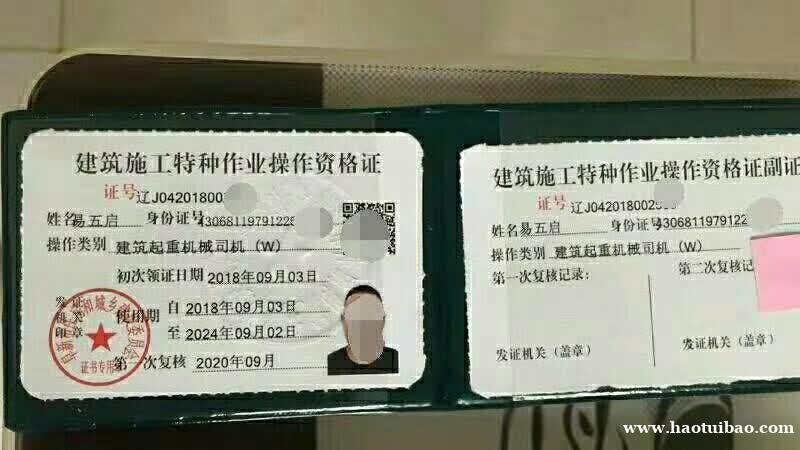 建筑施工特种作业操作资格证
证号 辽J04201800
姓名 易五启 身份证号 43068119791228
操作类别 建筑起重机械司机（W）
初次领证日期 2018年09月03日
发证机关印章
使用期 自 2018年09月03日
至 2024年09月02日
第一次复核 2020年09月
证书专用章
建筑施工特种作业操作资格证副证
证号 辽J042018002
姓名 易五启 身份证号 4306811979122
操作类别 建筑起重机械司机（W）
第一次复核记录：
第二次复核记
发证机关（盖章）
发证机关（盖章）
www.haotuibao.com